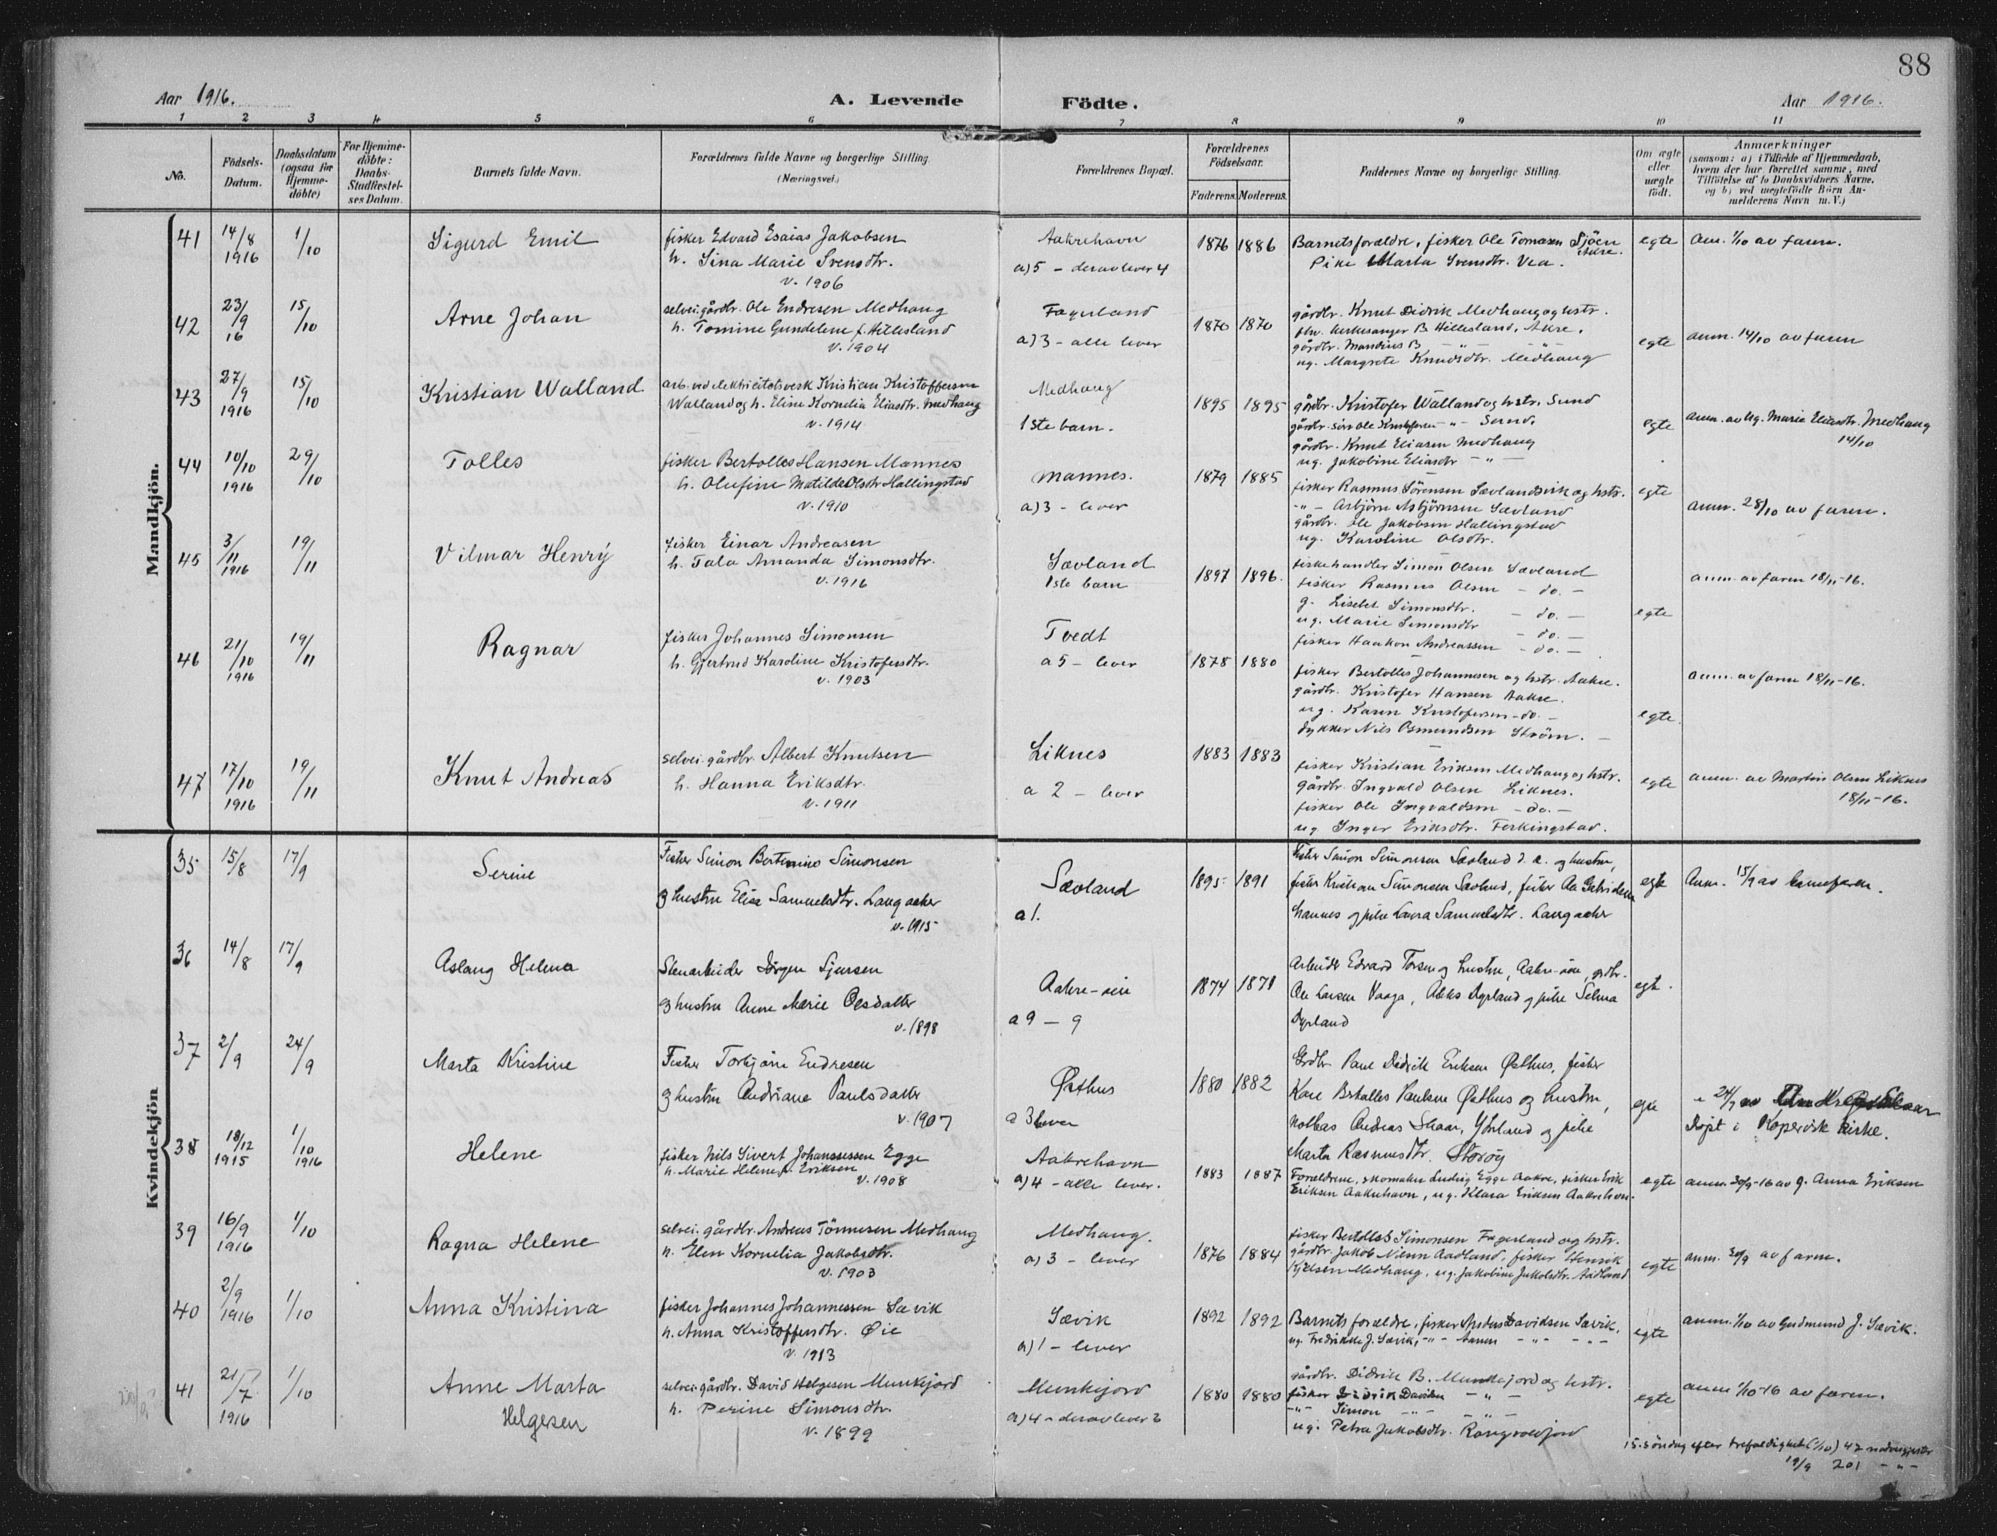 88
Aar 1916.
A. Levende
Födte.
Aar 1916.
1 2 3 4 5 6 7 8 9 10 11
No.
Födsels-Datum.
Daabsdatum (ogsaa for Hjemme-döbte)
For Hjemme-döbte: Daabs-Stadfæstel-ses Datum.
Barnets fulde Navn.
Forældrenes fulde Navne og borgerlige Stilling.
(Næringsvei.)
Forældrenes Bopæl.
Forældrenes Födselsaar.
Faderens. Moderens.
Faddernes Navne og borgerlige Stilling.
Om ægte eller uægte født.
Anmærkninger
(saasom: a) i Tilfælde af Hjemmedaab, hvem der har forrettet samme, med Tilföielse af to Daabsvidners Navne, og b) ved uægtefödte Börn An-melderens Navn m. V.)
Mandkjön.
41 14/8 1916 1/10 Sigurd Emil
fisker Edvard Esaias Jakobsen
h. Sina Marie Svensdtr.
v. 1906
Aakrehavn
a) 5 - derav lever 4
1876 1886
Barnets forældre, fisker Ole Tomasen Sjöen Akre.
Pike Marta Svensdtr. Vea.
egte
Anm. 1/10 av faren.
42 23/9 16 15/10 Arne Johan
selvei. gårdbr. Ole Endresen Medhaug
h. Tomine Gundelene f. Hillesland
v. 1904
Fagerland
a) 3 - alle lever
1870 1870
gårdbr. Knut Didrik Medhaug og hstr.
fhv. kirkesanger B Hillesland, Akre.
gårdbr. Mandius B - " - - " -
ug. Margrete Knudsdtr. Medhaug
egte
anm. 14/10 av faren
43 27/9 1916 15/10 Kristian Walland
arb. ved elektricitetsverk Kristian Kristoffersen
Walland og h. Eline Kornelia Eliasdtr. Medhaug
v. 1914
Medhaug
1ste barn.
1895 1895
gårdbr. Kristofer Walland og hstr. Sund
gårdbr. sön Ole Kristofersen - " - Sund.
gårdbr. Knut Eliasen Medhaug
ug. Jakobine Eliasdtr - " -
egte
anm. av ug. Marie Eliasdtr. Medhaug
14/10
44 10/10 1916 29/10 Tolles
fisker Bertolles Hansen Mannes
h. Olufine Matilde Olsdtr Hallingstad
v. 1910
Mannes.
a) 3 - lever
1879 1885
fisker Rasmus Sörensen Sævlandsvik og hstr.
- " - Asbjörn Asbjörnsen Sævland
gårdbr. Ole Jakobsen Hallingstad
ug. Karoline Olsdtr.
egte
anm. 28/10 av faren.
45 3/11 1916 19/11 Vilmar Henry
fisker Einar Andreasen
h. Tala Amanda Simonsdtr.
v. 1916
Sævland
1ste barn
1897 1896.
fiskehandler Simon Olsen Sævland
fisker Rasmus Olsen - do. -
g. Lisebet Simonsdtr. - do. -
ug. Marie Simonsdtr - do. -
fisker Haakon Andreassen - do. -
egte
anm. av faren 18/11-16.
46 21/10 1916 19/11 Ragnar
fisker Johannes Simonsen
h. Gjertrud Karoline Kristofersdtr.
v. 1903
Tvedt
a 5 - lever
1878 1880
fisker Bertolles Johannesen og hstr. Aakre.
gårdbr. Kristofer Hansen Aakre.
ug. Karen Kristofersen - do. -
dykker Nils Osmundsen Ström. -
egte.
anm. av faren 18/11-16.
47 17/10 1916 19/11 Knut Andreas
selvei. gårdbr. Albert Knutsen
h. Hanna Eriksdtr.
v. 1911
Liknes
a 2 - lever
1883 1883
fisker Kristian Eriksen Medhaug og hstr.
gårdbr. Ingvald Olsen Liknes.
fisker Ole Ingvaldsen - do. -
ug Inger Eriksdtr. Ferkingstad.
egte
anm. av Martin Olsen Liknes
18/11-16.
Kvindekjön
35 15/8 17/9 Serine
Fisker Simon Bertinius Simonsen
og hustru Elisa Samuelsdtr. Langaaker
v. 1915
Sævland
a 1.
1895 1891
Fisker Simon Simonsen Sævland d. æ. og hustru,
fisker Kristian Simonsen Sævland, fisker
Hannes og pike Laura Samuelsdtr. Langaaker
egte
Anm. 15/9 av barnefaren.
36 14/8 17/9 Aslaug Helena
Stenarbeider Jörgen Sjursen
og hustru Anne Marie Olsdatter
v. 1898
Aakre-
a 9 - 9
1874 1871
Arbeider Edvard Torsen og hustru, Aakre-, grdbr.
Ole Larsen Vaaga, Aleks Dyrland og pike Selma
Dyrland
egt.
37 2/9 24/9 Marta Kristine
Fisker Torbjörn Endresen
og hustru Andriane Paulsdatter
v. 1907
Østhus
a 3 lever
1880 1882
Grdbr. Paul Didrik Eriksen Østhus, fisker
Kare Bertolles Paulsen Østhus og hustru,
Andreas Skaar, Ytreland og pike
Marta Rasmusdtr. Storöy
egte
Döpt i Kopervik kirke.
38 18/12 1915 1/10 1916 Helene
fisker Nils Sivert Johannessen Egge
h. Marie Helene f. Eriksen
v. 1908
Aakrehavn
a) 4 - alle lever.
1883 1887
Forældrene, skomaker Ludvig Egge Aakre, fisker Erik
Eriksen Aakrehavn, ug. Klara Eriksen Aakrehavn.
egte
anm. 30/9-16 av g. Anna Eriksen
39 16/9 1916 1/10 Ragna Helene
selvei. gårdbr. Andreas Tönnesen Medhaug
h. Elen Kornelia Jakobsdtr.
v. 1903
Medhaug.
a) 3 - lever
1876 1884
fisker Bertolles Simonsen Fagerland og hstr.
gårdbr. Jakob Nilsen Aadland, fisker Henrik
Kjelsen Medhaug, ug. Jakobine Jakobsdtr. Aadland
egte
anm. 30/9 av faren.
40 2/9 1916 1/10 Anna Kristina
fisker Johannes Johannessen Sævik
h. Anna Kristoffersdtr. Øie
v. 1913
Sævik
a) 1 - lever
1892 1892
Barnets forældre, fisker Anders Davidsen Sævik,
ug. Fredrikke J. Sævik,
egte
anm. 1/10 av Gudmund J. Sævik.
41 21/7 1916 1/10 Anne Marta
Helgesen
selvei. gårdbr. David Helgesen Munkejord
h. Perine Simonsdtr.
v. 1899
Munkejord
a) 4 - derav lever 2
1880 1880
gårdbr. Didrik B. Munkejord og hstr.
fisker Didrik Davidsen - " -
- " - Simon - " - - " -
ug. Petra Jakobsdtr. Rangvoldjord
egte
anm 1/10-16 av faren.
15. söndag efter trefoldighet (1/10) 42 nadvergjester
19/9 201 - " -